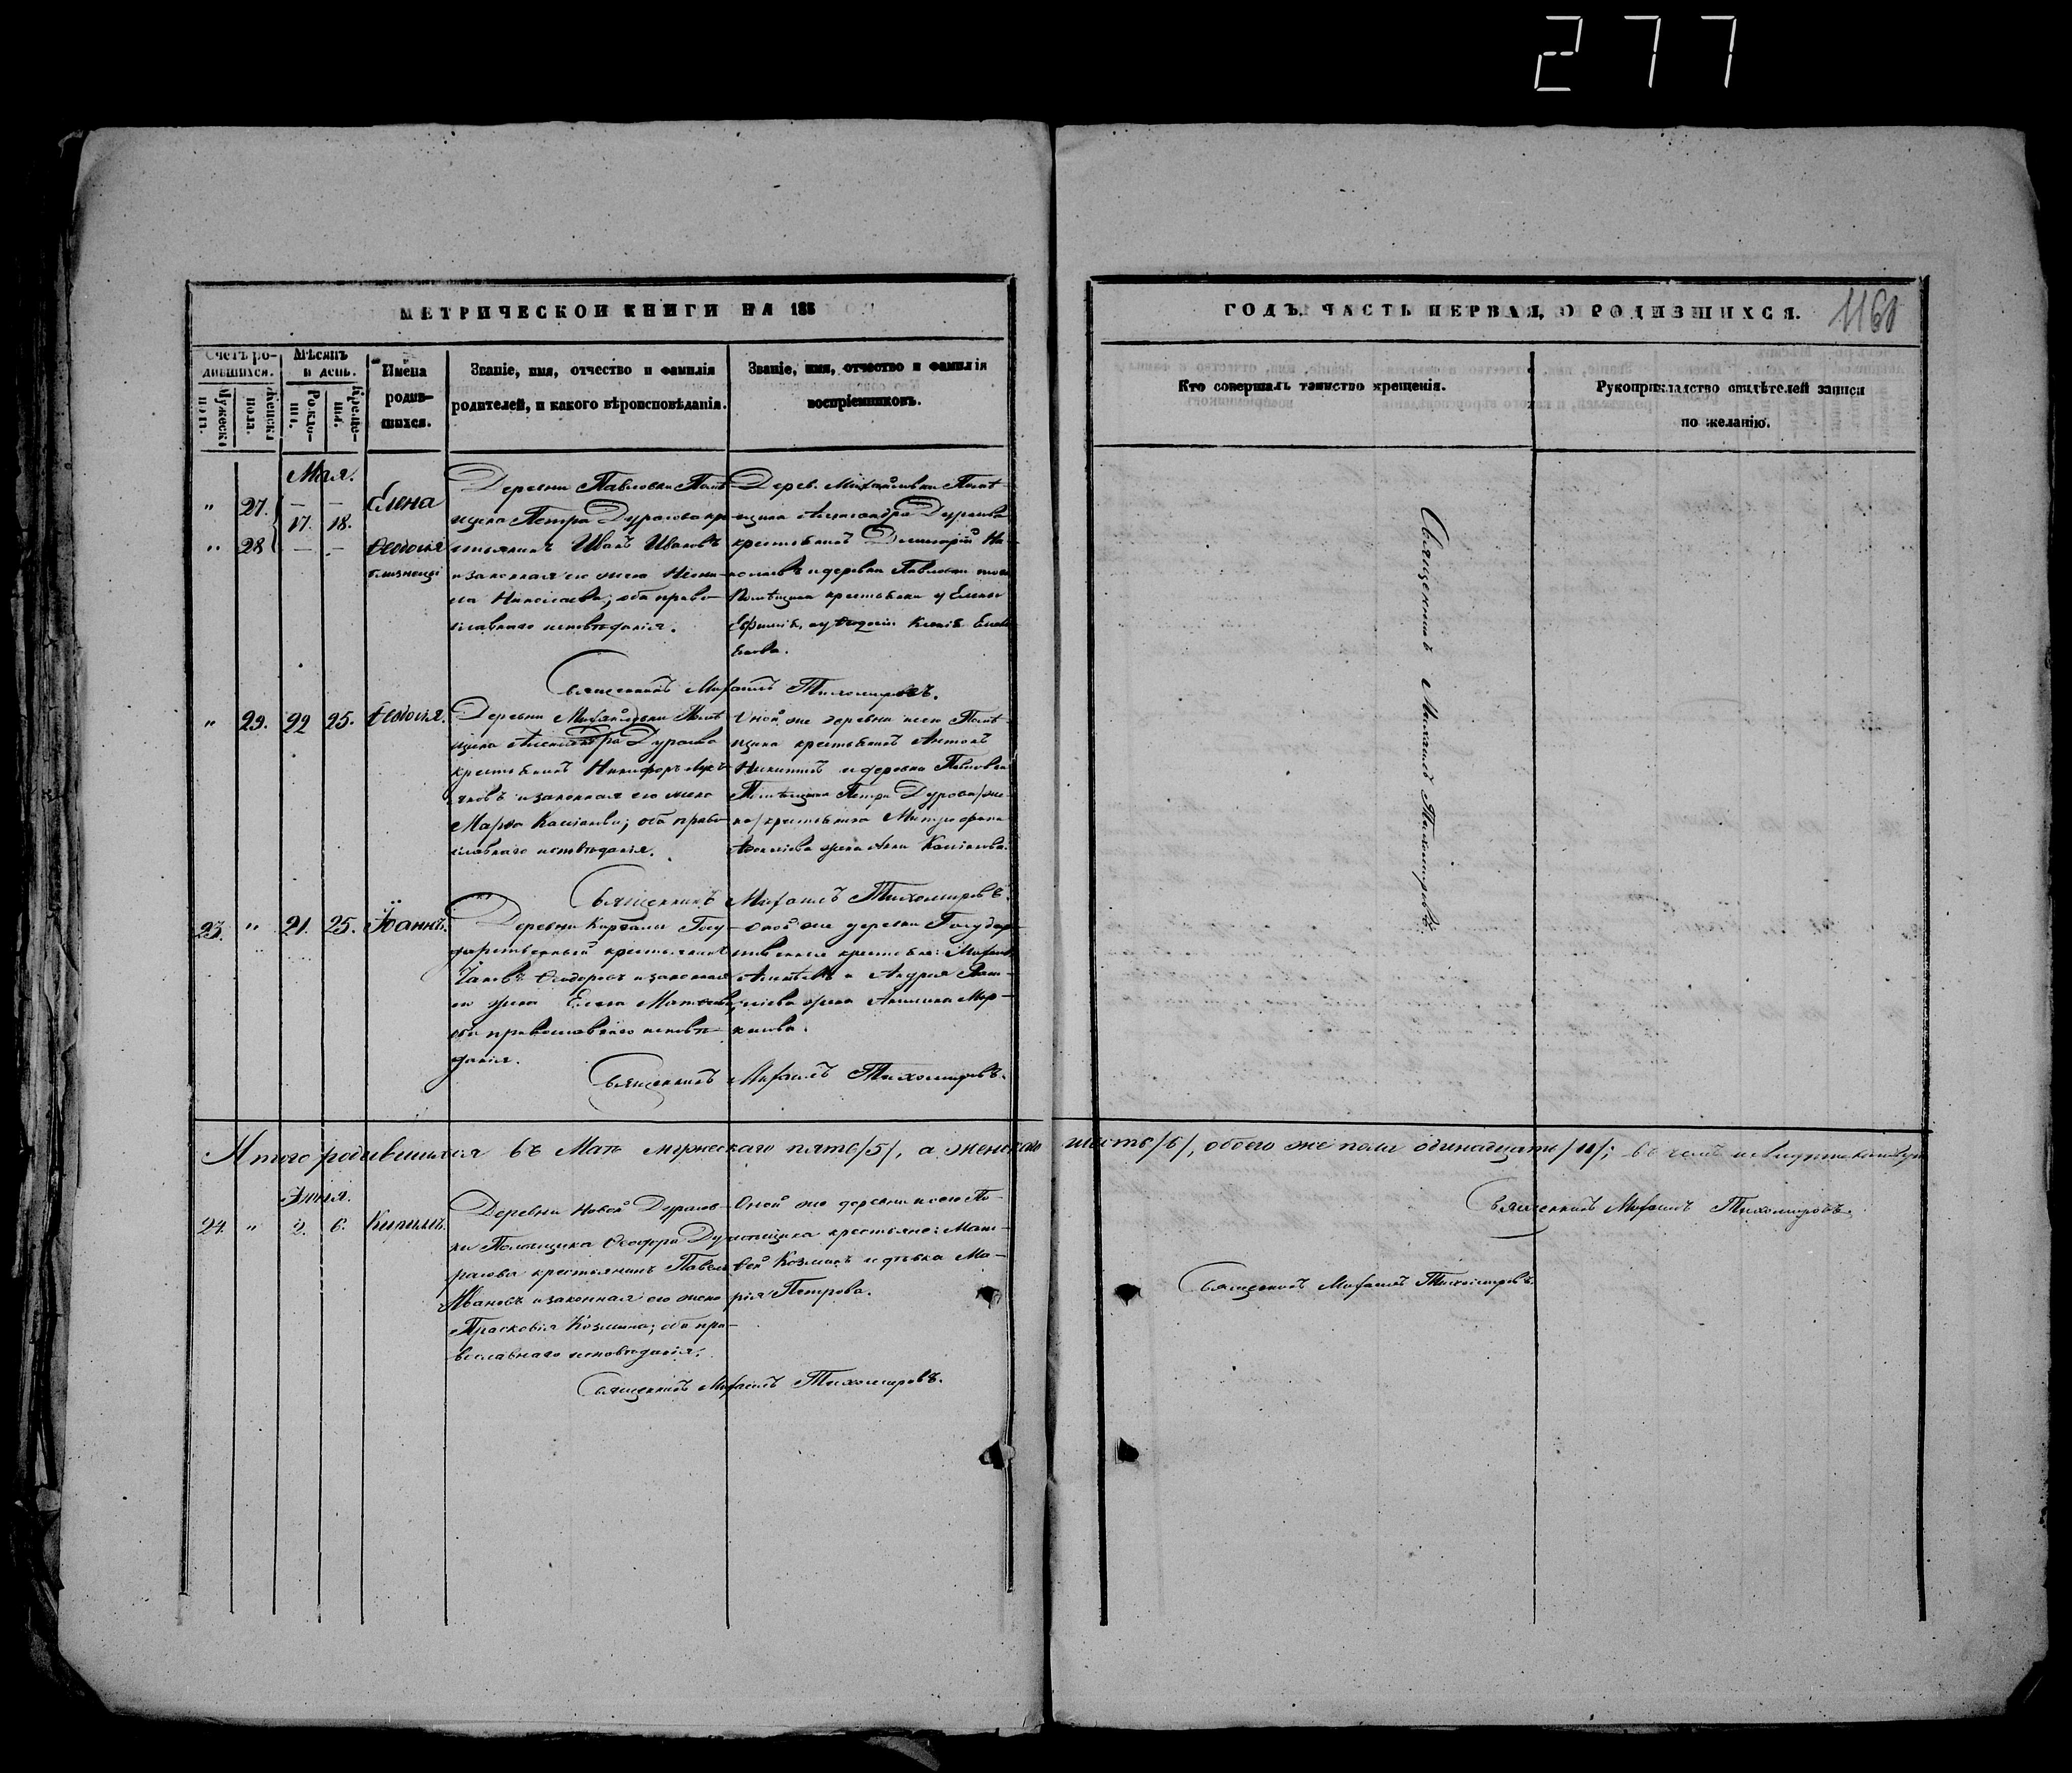 277
МЕТРИЧЕСКОЙ КНИГИ НА 185
ГОДЪ, ЧАСТЬ ПЕРВАЯ, О РОДИВШИХСЯ.
1160
Счетъ ро-
дившихся.
Мужеска
пола.
Женска
пола.
Мѣсяцъ
и день.
Рожде-
нія.
Креще-
нія.
Имена
родив-
шихся.
Званіе, имя, отчество и фамилія
родителей, и какого вѣроисповѣданія.
Званіе, имя, отчество и фамилія
воспріемниковъ.
Кто совершалъ таинство крещенія.
Рукоприкладство свидѣтелей записи
по желанію.
Мая.
" 27. 17. 18. Елена
" 28 Ѳеодосія
близнецы
Деревни Павловки Помѣ-
щика Петра Дурасова кре-
стьянинъ Иванъ Ивановъ
и законная его жена
Николаева; оба право-
славнаго исповѣданія.
Дерев. Михайловки Помѣ-
щика Александра Дурасова
крестьянинъ Димитрій Ни-
колаевъ и деревни Павловки
Помѣщика крестьянки у Елены
Священникъ Михаилъ Тихомировъ.
" 29. 22 25. Ѳеодосія.
Деревни Михайловки Помѣ-
щика Александра Дурасова
крестьянинъ Никифоръ
и законная его жена
Марѳа; оба право-
славнаго исповѣданія.
Оной же деревни и его Помѣ-
щика крестьянинъ Антонъ
Никитинъ и деревни Павловки
Помѣщика Петра Дурасова
крестьянина Митрофана
жена Анна
Священникъ Михаилъ Тихомировъ.
23. " 21. 25. Іоаннъ.
Деревни Госу-
дарственный крестьянинъ
Ѳеодоровъ и законная
его жена Елена
оба православнаго исповѣ-
данія.
Оной же деревни Государ-
ственныя крестьяне: Михаилъ
и Андрея
жена Акилина Мар-
кова.
Священникъ Михаилъ Тихомировъ.
Священникъ Михаилъ Тихомировъ.
Итого родившихся въ Маѣ мужескаго пять /5/, а женскаго шесть /6/, обоего же пола одинадцать /11/; въ чемъ и свидѣтельствуетъ
Священникъ Михаилъ Тихомировъ.
Іюня.
24. " 2. 6. Кириллъ.
Деревни Новой Дурасов-
ки Помѣщика Ѳеодора Ду-
расова крестьянинъ Павелъ
Ивановъ и законная его жена
Прасковія Козмина; оба пра-
вославнаго исповѣданія.
Оной же деревни и его По-
мѣщика крестьяне: Мат-
вей Козминъ и дѣвка Ма-
рія Петрова.
Священникъ Михаилъ Тихомировъ.
Священникъ Михаилъ Тихомировъ.